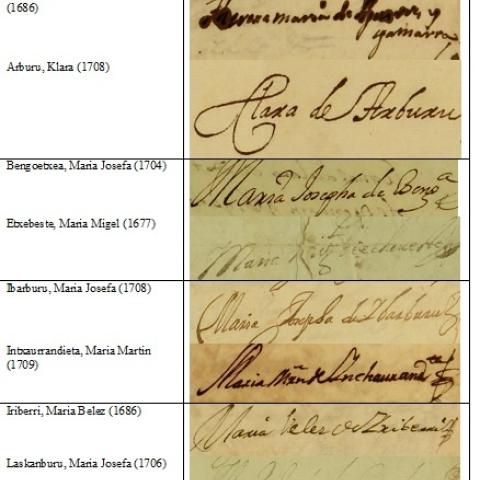 (1686)
maria de
y
gamarra
Arburu, Klara (1708)
Clara de Arburu
Bengoetxea, Maria Josefa (1704)
Maria Josepha de Beng^a
Etxebeste, Maria Migel (1677)
Maria
Ibarburu, Maria Josefa (1708)
Maria Josepha de Ibarburu
Intxaurrandieta, Maria Martin
(1709)
Maria Mrn de Inchaurand^ta
Iriberri, Maria Belez (1686)
Maria Velez de Iriberri
Laskanburu, Maria Josefa (1706)